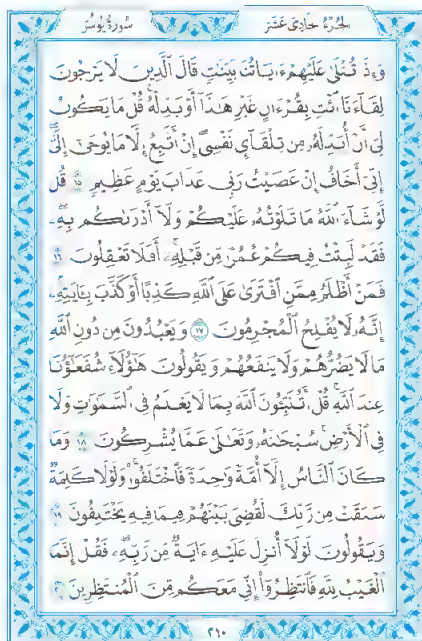 الجزء حادي عشر
سورة يونس
وإذ تتلى عليهم ءاياتنا بينت قال الذين لا يرجون
لقاءنا ائت بقرءان غير هذا أو بدله قل ما يكون
لى أن أبدله من تلقآي نفسى إن أتبع إلا ما يوحى إلى
إنى أخاف إن عصيت ربى عذاب يوم عظيم ١٥ قل
لو شاء الله ما تلوته عليكم ولا أدرىكم به
فقد لبثت فيكم عمرا من قبله أفلا تعقلون ١٦
فمن أظلم ممن افترى على الله كذبا أو كذب بـايته
إنه لا يفلح المجرمون ١٧ ويعبدون من دون الله
ما لا يضرهم ولا ينفعهم ويقولون هؤلاء شفعؤنا
عند الله قل أتنبئون الله بما لا يعلم فى السموت ولا
فى الأرض سبحنه وتعلى عما يشركون ١٨ وما
كان الناس إلا أمة وحدة فاختلفوا ولولا كلمة
سبقت من ربك لقضى بينهم فيما فيه يختلفون ١٩
ويقولون لولا أنزل عليه ءاية من ربه فقل إنما
الغيب لله فانتظروا إنى معكم من المنتظرين ٢٠
٢١٠